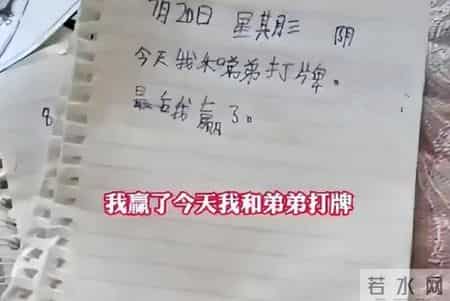 7月20日 星期三 阴
今天我和弟弟打牌。
最后我赢了。
8
我赢了今天我和弟弟打牌
若水网